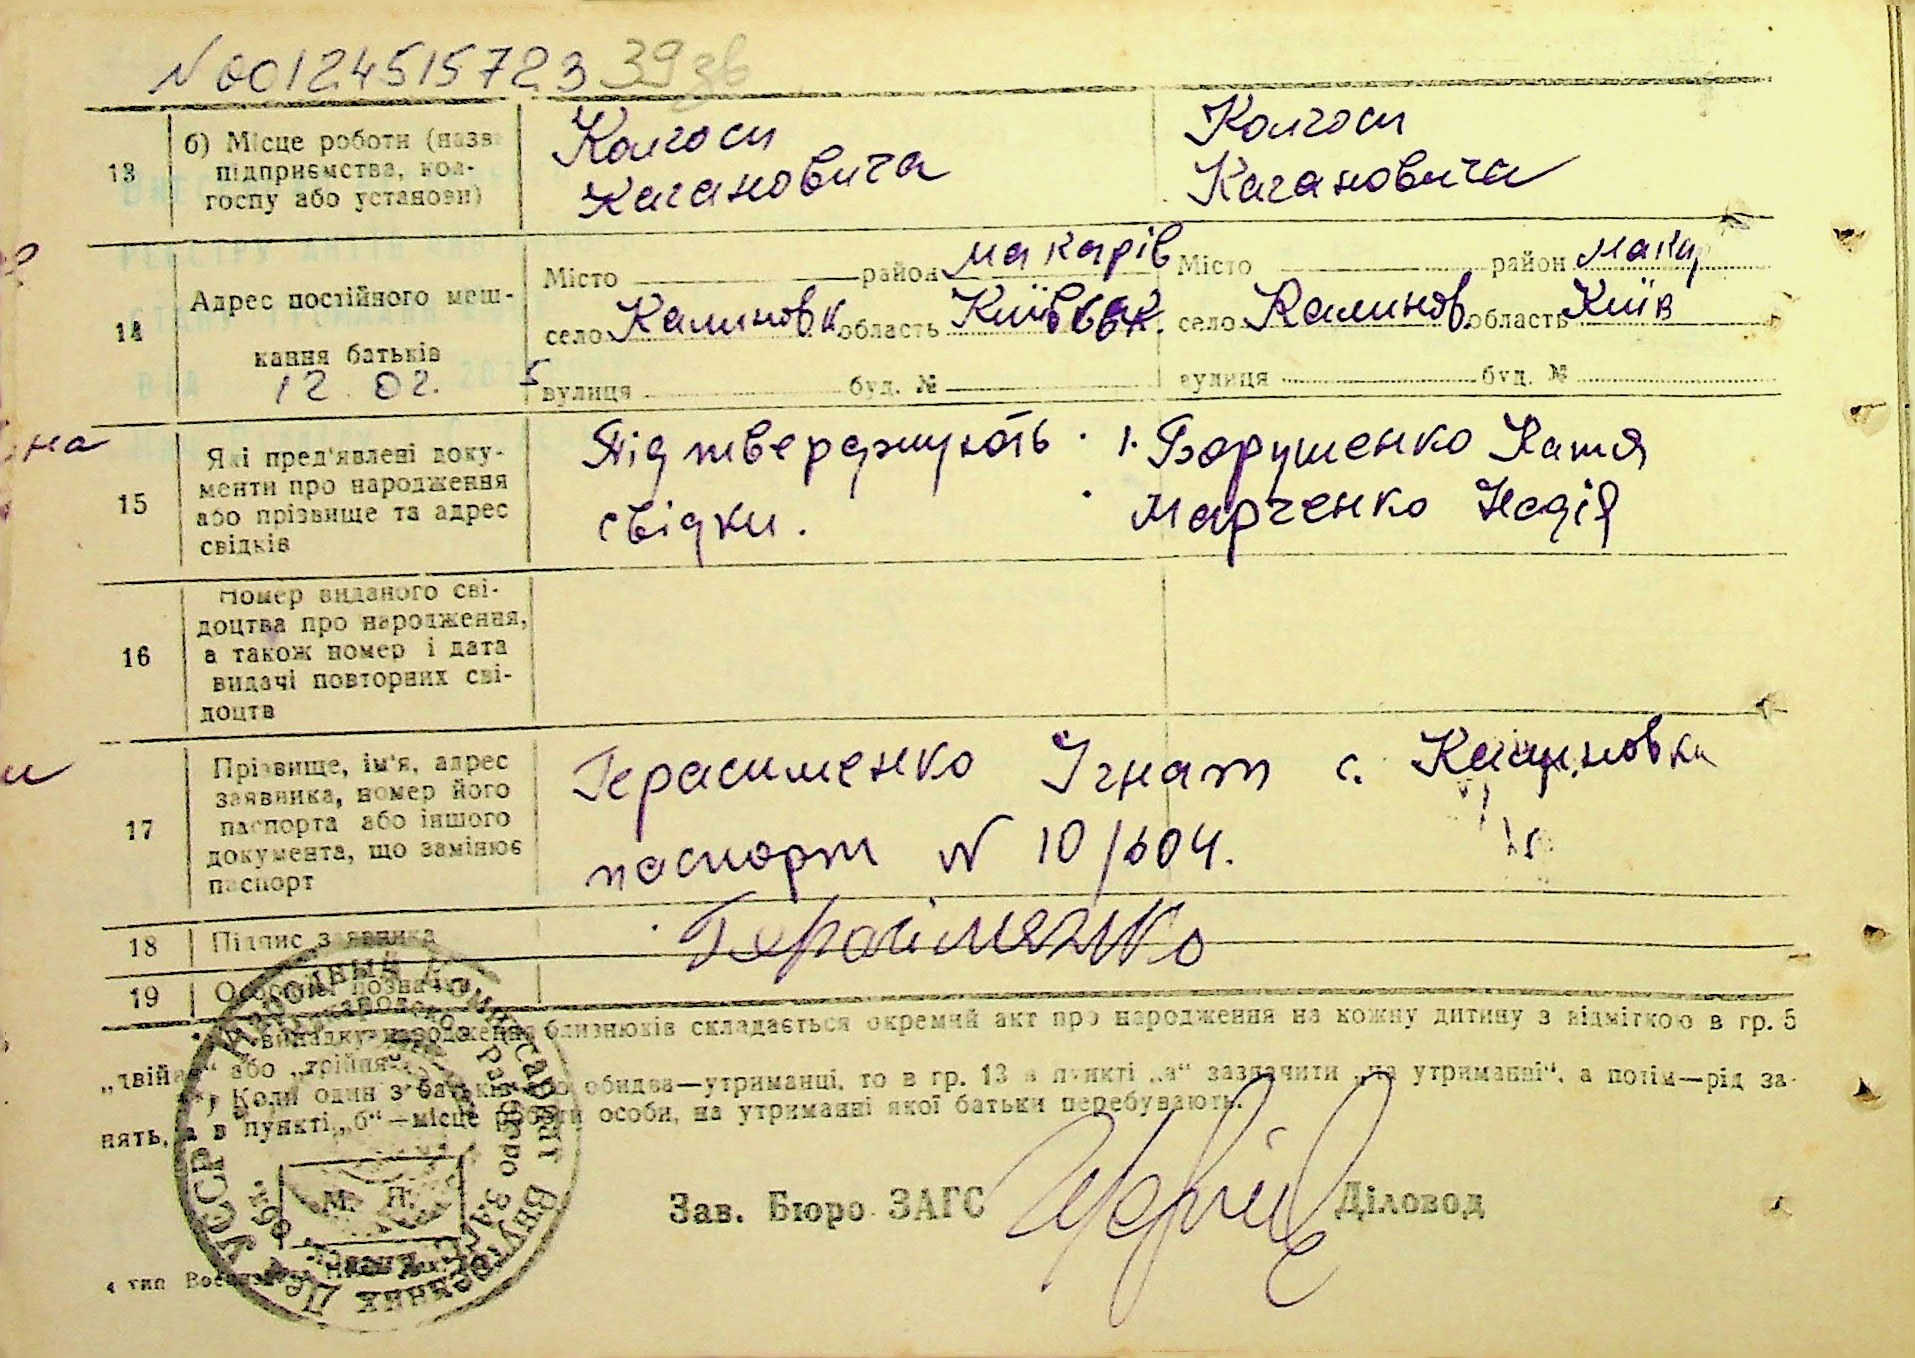 N 00124515723 39 зв
13
б) Місце роботи (назва
підприємства, кол-
госпу або установи)
Колгосп
Кагановича
Колгосп
Кагановича
14
Адрес постійного меш-
кання батьків
12.02.
Місто район Макарів
село Калиновк область Київськ.
вулиця буд. №
Місто район Макар
село Калинов область Київ
вулиця буд. №
15
Які пред'явлені доку-
менти про народження
або прізвище та адрес
свідків
Підтверджують
свідки.
1. Борушенко Катя
Марченко Надія
16
Номер виданого сві-
доцтва про народження,
а також номер і дата
видачі повторних сві-
доцтв
17
Прізвище, ім'я, адрес
заявника, номер його
паспорта або іншого
документа, що замінює
паспорт
Герасименко Ігнат с. Калиновка
паспорт N 10/604.
18
Підпис заявника
Герасіменко
19
Особливі познач
випадку народження близнюків складається окремий акт про народження на кожну дитину з відміткою в гр. 5
„двійня“ або „трійня“
*) Коли один з батьків або обидва—утриманці, то в гр. 13 в пункті „а“ зазначити „на утриманні“, а потім—рід за-
нять, а в пункті „б“—місце роботи особи, на утриманні якої батьки перебувають.
Зав. Бюро ЗАГС
Діловод
Народный Комиссариат Внутренних Дел УССР
М. П.
4 тип